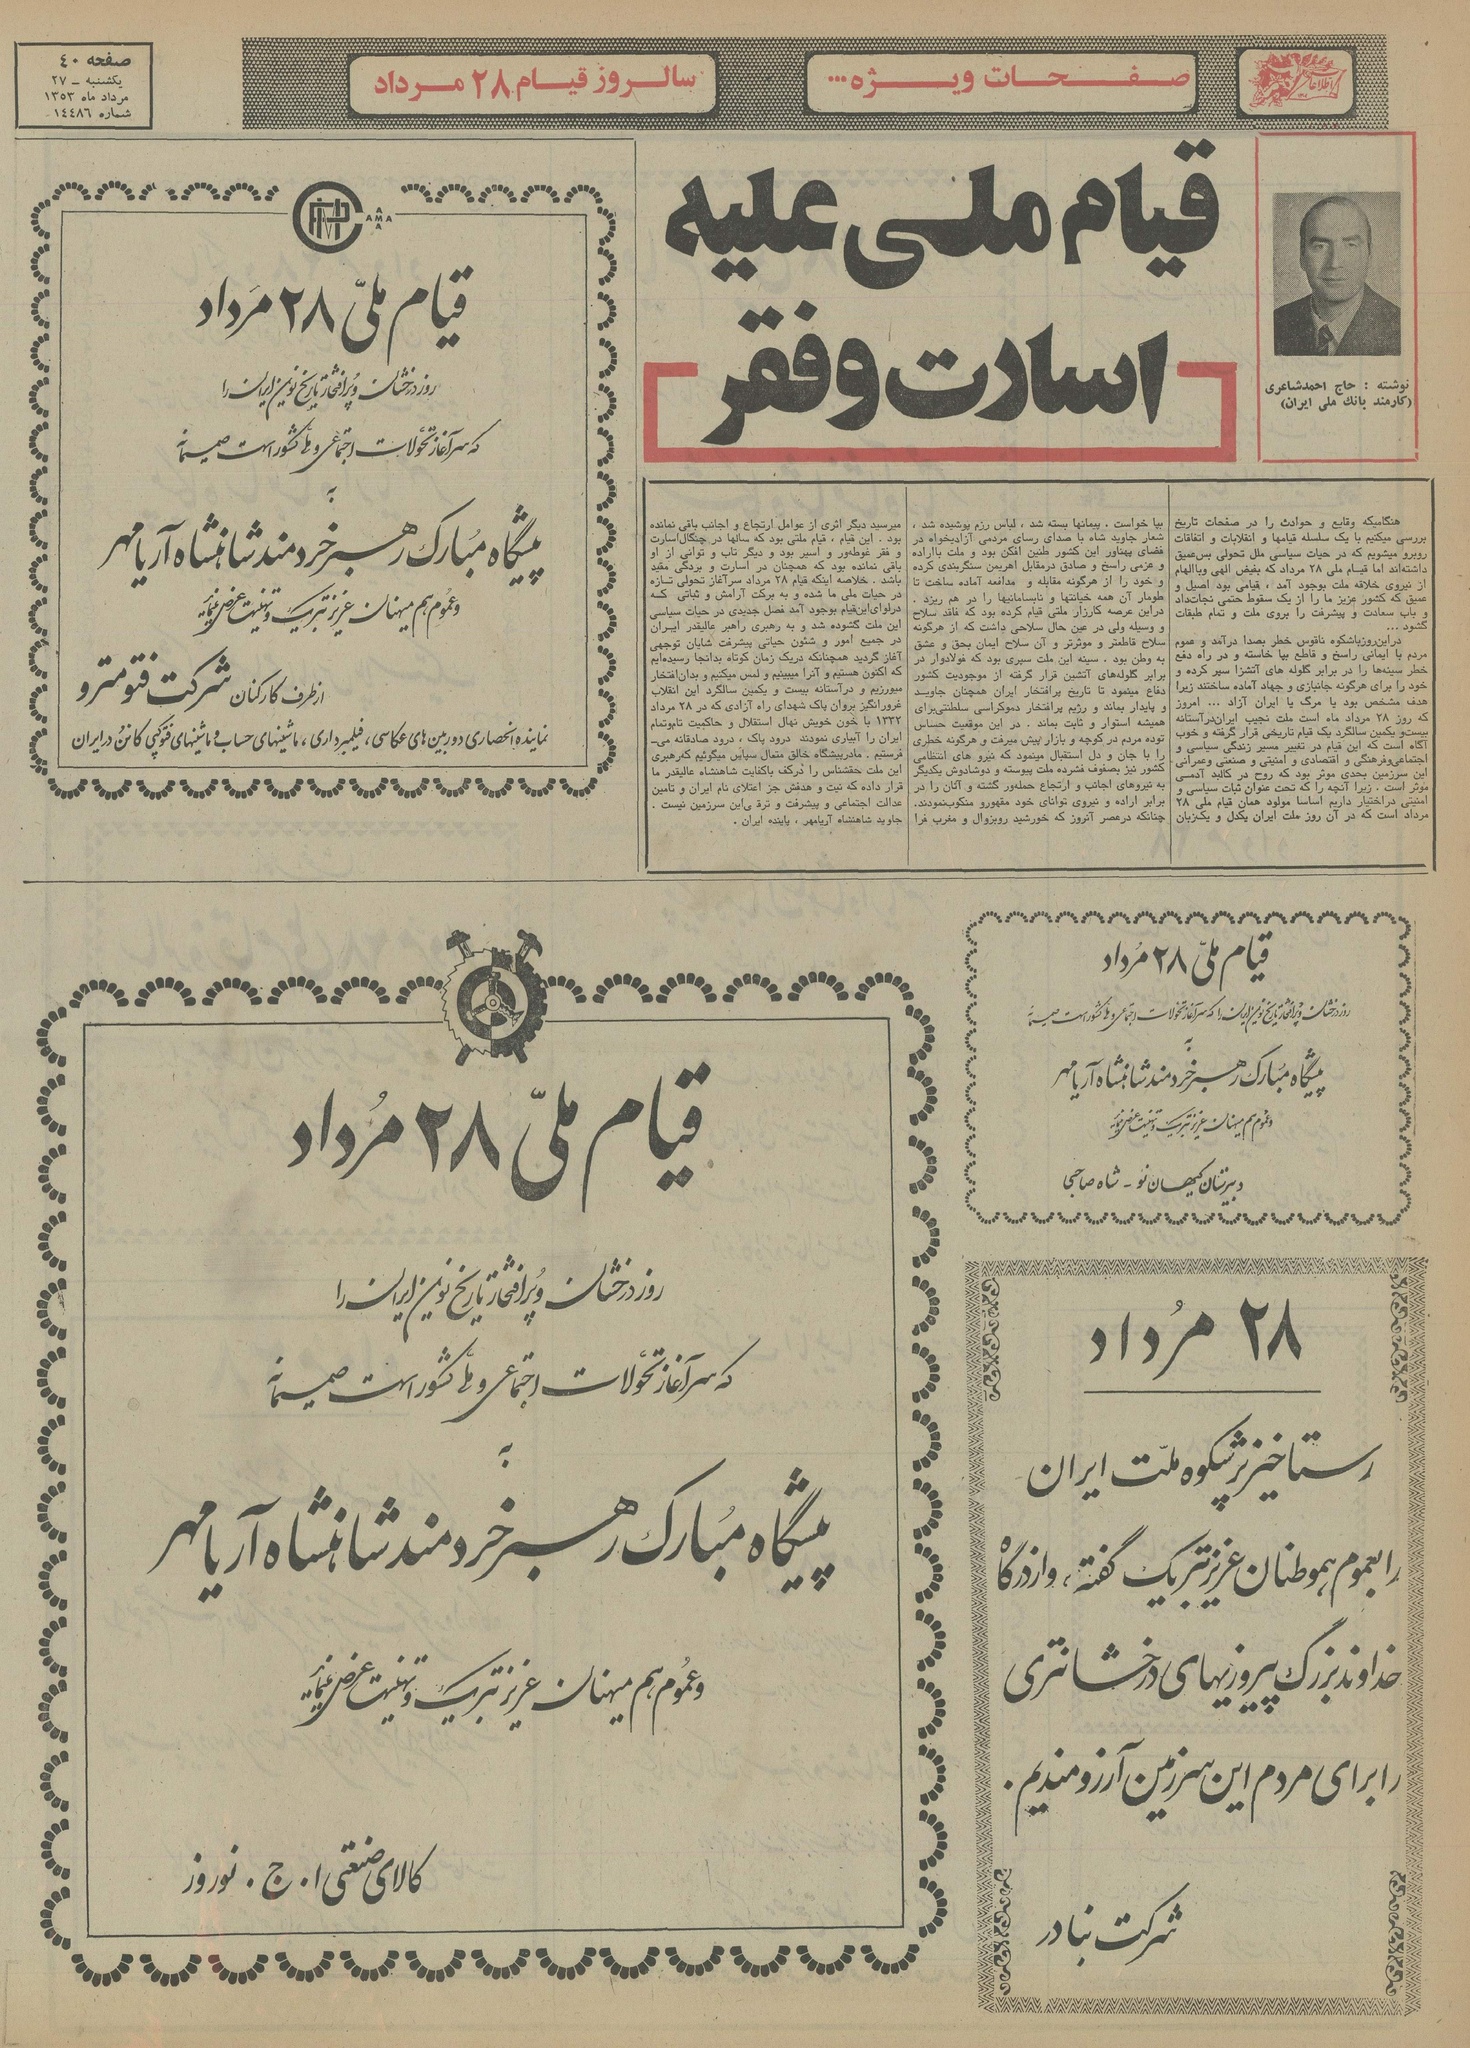 صفحه ٤٠
یکشنبه – ۲۷
مرداد ماه ۱۳۵۳
شماره ۱٤٤۸٦
سالروز قیام ۲۸ مرداد
صفحات ویژه...
اطلاعات
قیام ملی علیه
اسارت و فقر
نوشته : حاج احمد شاعری
(کارمند بانک ملی ایران)
هنگامیکه وقایع و حوادث را در صفحات تاریخ
بررسی میکنیم با یک سلسله قیامها و انقلابات و اتفاقات
روبرو میشویم که در حیات سیاسی ملل تحولی بس‌عمیق
داشته‌اند اما قیام ملی ۲۸ مرداد که بفیض الهی و باالهام
از نیروی خلاقه ملت بوجود آمد ، قیامی بود اصیل و
عمیق که کشور عزیز ما را از یک سقوط حتمی نجات‌داد
و باب سعادت و پیشرفت را بروی ملت و تمام طبقات
گشود ...
در این‌روز باشکوه ناقوس خطر بصدا درآمد و عموم
مردم با ایمانی راسخ و قاطع بپا خاسته و در راه دفع
خطر سینه‌ها را در برابر گلوله های آتشزا سپر کرده و
خود را برای هرگونه جانبازی و جهاد آماده ساختند زیرا
هدف مشخص بود یا مرگ یا ایران آزاد ... امروز
که روز ۲۸ مرداد ماه است ملت نجیب ایران‌درآستانه
بیست‌و یکمین سالگرد یک قیام تاریخی قرار گرفته و خوب
آگاه است که این قیام در تغییر مسیر زندگی سیاسی و
اجتماعی‌وفرهنگی و اقتصادی و امنیتی و صنعتی وعمرانی
این سرزمین بحدی موثر بود که روح در کالبد آدمی
موثر است . زیرا آنچه را که تحت عنوان ثبات سیاسی و
امنیتی دراختیار داریم اساسا مولود همان قیام ملی ۲۸
مرداد است که در آن روز ملت ایران یکدل و یک‌زبان
بپا خواست . پیمانها بسته شد ، لباس رزم پوشیده شد ،
شعار جاوید شاه با صدای رسای مردمی آزادیخواه در
فضای پهناور این کشور طنین افکن بود و ملت بااراده
و عزمی راسخ و صادق درمقابل اهریمن سنگربندی کرده
و خود را از هرگونه مقابله و مدافعه آماده ساخت تا
طومار آن همه خیانتها و نابسامانیها را در هم ریزد .
دراین عرصه کارزار ملتی قیام کرده بود که فاقد سلاح
و وسیله ولی در عین حال سلاحی داشت که از هرگونه
سلاح قاطعتر و موثرتر و آن سلاح ایمان بحق و عشق
به وطن بود . سینه این ملت سپری بود که فولادوار در
برابر گلوله‌های آتشین قرار گرفته از موجودیت کشور
دفاع مینمود تا تاریخ پرافتخار ایران همچنان جاوید
و پایدار بماند و رژیم پرافتخار دموکراسی سلطنتی‌برای
همیشه استوار و ثابت بماند . در این موقعیت حساس
توده مردم در کوچه و بازار پیش میرفت و هرگونه خطری
را با جان و دل استقبال مینمود که نیرو های انتظامی
کشور نیز بصفوف فشرده ملت پیوسته و دوشادوش یکدیگر
به نیروهای اجانب و ارتجاع حمله‌ور گشته و آنان را در
برابر اراده و نیروی توانای خود مقهورو منکوب‌نمودند.
چنانکه درعصر آنروز که خورشید روبزوال و مغرب فرا
میرسید دیگر اثری از عوامل ارتجاع و اجانب باقی نمانده
بود . این قیام ، قیام ملتی بود که سالها در چنگال‌اسارت
و فقر غوطه‌ور و اسیر بود و دیگر تاب و توانی از او
باقی نمانده بود که همچنان در اسارت و بردگی مقید
باشد . خلاصه اینکه قیام ۲۸ مرداد سرآغاز تحولی تـازه
در حیات ملی ما شده و به برکت آرامش و ثباتی کـه
درلوای‌این‌قیام بوجود آمد فصل جدیدی در حیات سیاسی
این ملت گشوده شد و به رهبری راهبر عالیقدر ایـران
در جمیع امور و شئون حیاتی پیشرفت شایان توجهی
آغاز گردید همچنانکه دریک زمان کوتاه بدانجا رسیده‌ایم
که اکنون هستیم و آنرا میبینیم و لمس میکنیم و بدان‌افتخار
میورزیم و درآستانه بیست و یکمین سالگرد این انقلاب
غرورانگیز بروان پاک شهدای راه آزادی که در ۲۸ مرداد
۱۳۳۲ با خون خویش نهال استقلال و حاکمیت تام‌وتمام
ایران را آبیاری نمودند درود پاک ، درود صادقانه می‌ـ
فرستیم . مادرپیشگاه خالق متعال سپاس میگوئیم که‌رهبری
این ملت حقشناس را درکف باکفایت شاهنشاه عالیقدر ما
قرار داده که نیت و هدفش جز اعتلای نام ایران و تامین
عدالت اجتماعی و پیشرفت و ترقی‌این سرزمین نیست .
جاوید شاهنشاه آریامهر ، پاینده ایران .
AMA
قیام ملّی ۲۸ مَرداد
روز درخشان و پُر افتخار تاریخ نوین ایران را
که سر آغاز تحوّلات اجتماعی و ملّی کشور است صمیمانه
به
پیشگاه مُبارک رهبر خردمند شاهنشاه آریامهر
و عُموم هم میهنان عزیز تبریک و تهنیت عرض مینماید
از طرف کارکنان شرکت فتومترو
نماینده انحصاری دوربین های عکاسی ، فیلمبرداری ، ماشینهای حساب و ماشینهای فتوکپی کانن در ایران
قیام ملّی ۲۸ مُرداد
روز درخشان و پُر افتخار تاریخ نوین ایران را که سر آغاز تحوّلات اجتماعی و ملّی کشور است صمیمانه
به
پیشگاه مُبارک رهبر خردمند شاهنشاه آریامهر
و عُموم هم میهنان عزیز تبریک و تهنیت عرض مینماید
دبیرستان کیهان نو - شاه صاحبی
قیام ملّی ۲۸ مُرداد
روز درخشان و پُر افتخار تاریخ نوین ایران را
که سر آغاز تحوّلات اجتماعی و ملّی کشور است صمیمانه
به
پیشگاه مُبارک رهبر خردمند شاهنشاه آریامهر
و عُموم هم میهنان عزیز تبریک و تهنیت عرض مینماید
کالای صنعتی ا . ج . نوروز
۲۸ مُرداد
رستاخیز پر شکوه ملّت ایران
را بعموم هموطنان عزیز تبریک گفته ، و از درگاه
خداوند بزرگ پیروزیهای درخشانتری
را برای مردم این سرزمین آرزومندیم .
شرکت نبادر